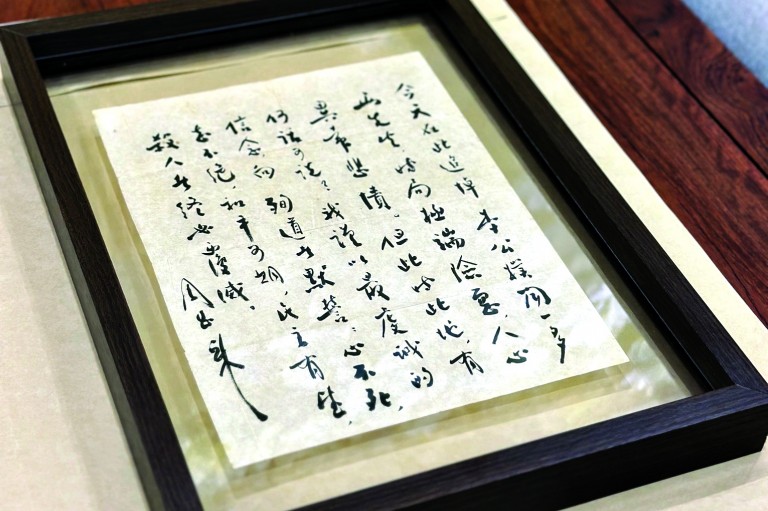 今天在此追悼李公樸聞一多
兩先生時局極端險惡,人心
異常悲憤。但此時此地,有
何話可說?我謹以最虔誠的
信念,向殉道者默誓:心不死,
志不絕,和平可期,民主有望,
殺人者終必覆滅。
周恩來